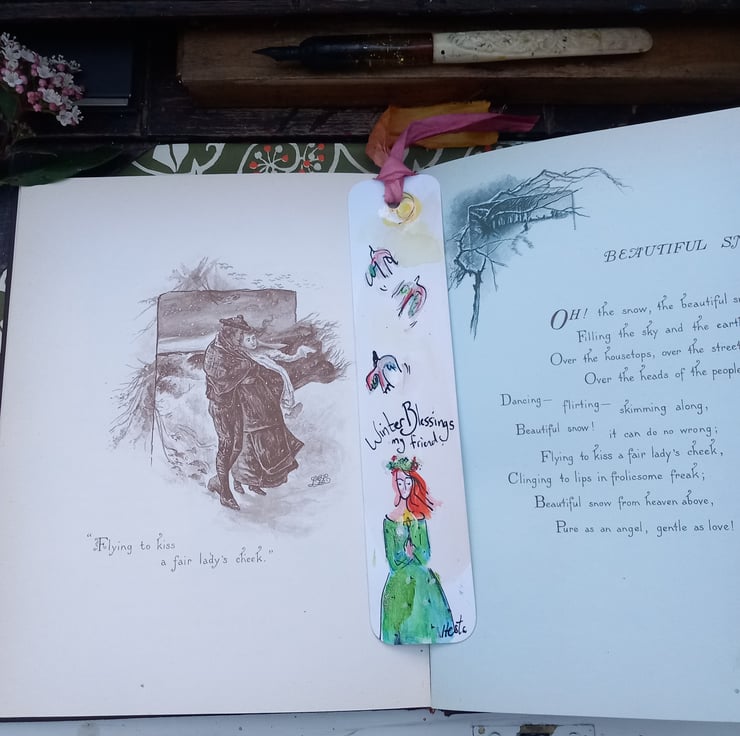 "Flying to kiss
a fair lady's cheek."
Winter Blessings
my friend!
BEAUTIFUL
OH! the snow, the beautiful
Filling the sky and the
Over the housetops, over the
Over the heads of the people
Dancing— flirting— skimming along,
Beautiful snow! it can do no wrong;
Flying to kiss a fair lady's cheek,
Clinging to lips in frolicsome freak;
Beautiful snow from heaven above,
Pure as an angel, gentle as love!